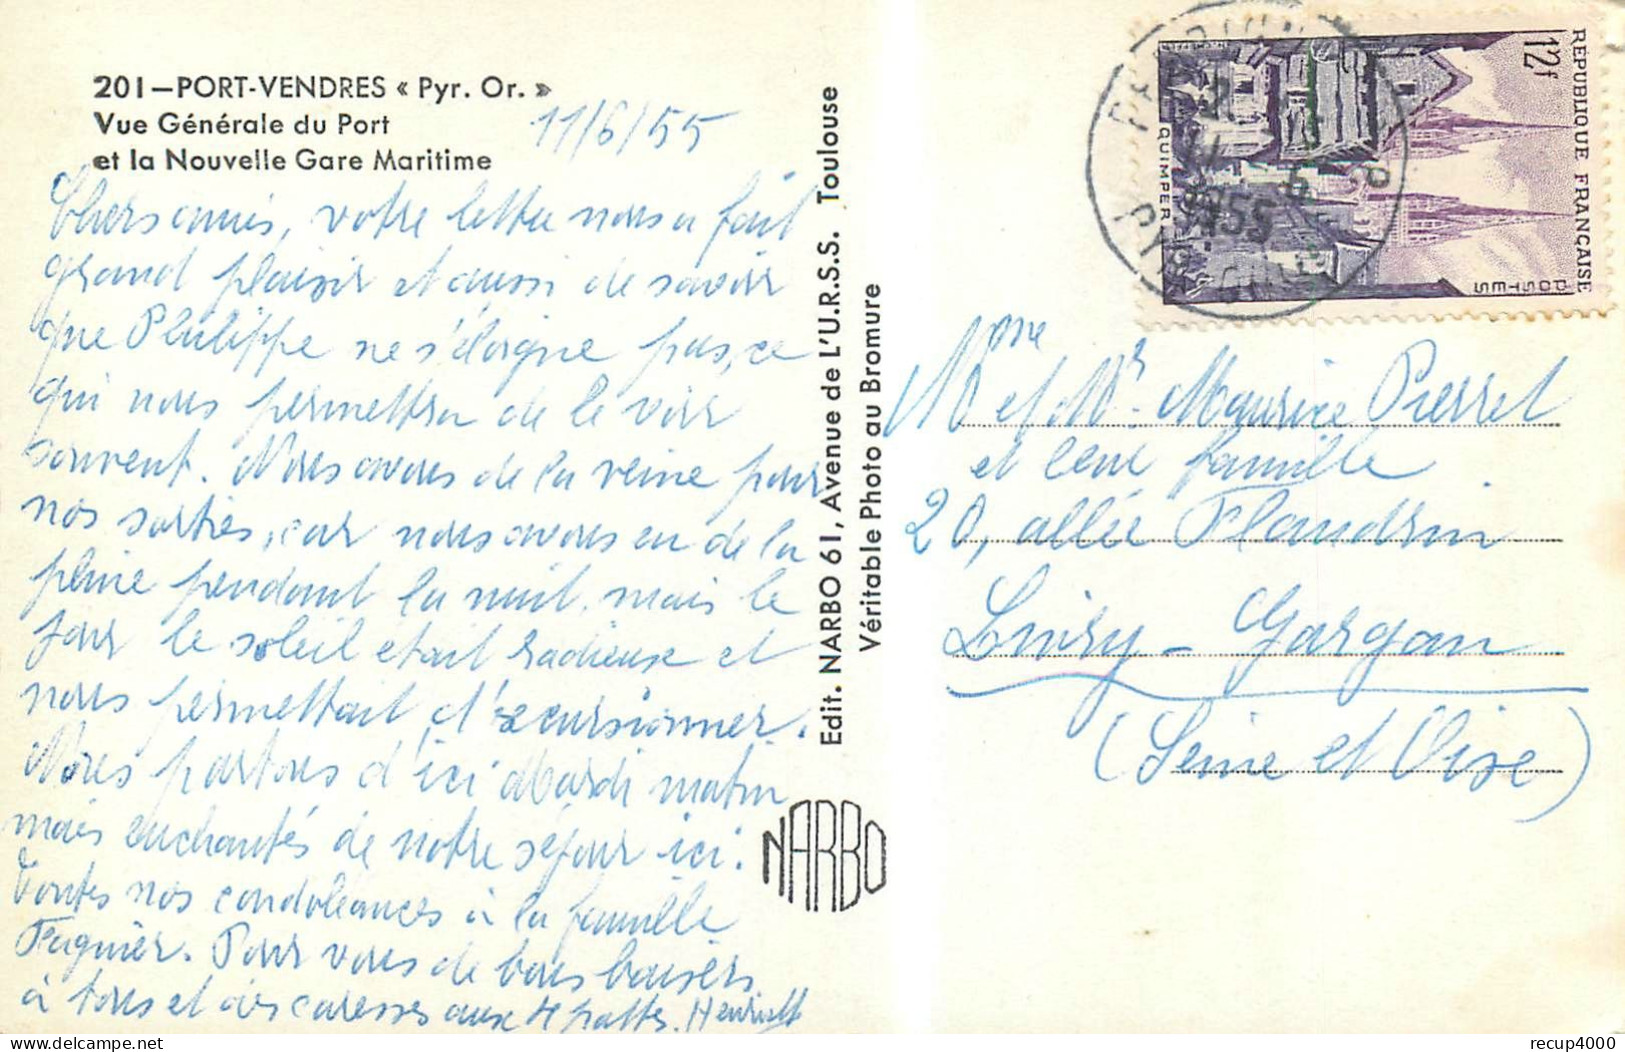 201 — PORT-VENDRES « Pyr. Or. »
Vue Générale du Port
et la Nouvelle Gare Maritime
11/6/55
Chers amis, votre lettre nous a fait
grand plaisir et aussi de savoir
que Philippe ne s'éloigne pas, ce
qui nous permettra de le voir
souvent. Nous avons de la veine pour
nos sorties, car nous avons eu de la
pluie pendant la nuit, mais le
jour le soleil était radieux et
nous permettait d'excursionner.
Nous partons d'ici Mardi matin
mais enchantés de notre séjour ici.
Toutes nos condoléances à la famille
Fagnier. Pour vous de bons baisers
à tous et des caresses aux 4 pattes. Henriett
Edit. NARBO 61, Avenue de L'U.R.S.S. Toulouse
Véritable Photo au Bromure
NARBO
RÉPUBLIQUE FRANÇAISE
12f
POSTES
QUIMPER
11 - 6
1955
Mme et Mr. Maurice Pierret
et leur famille
20, allée Flandrin
Livry-Gargan
(Seine et Oise)
recup4000